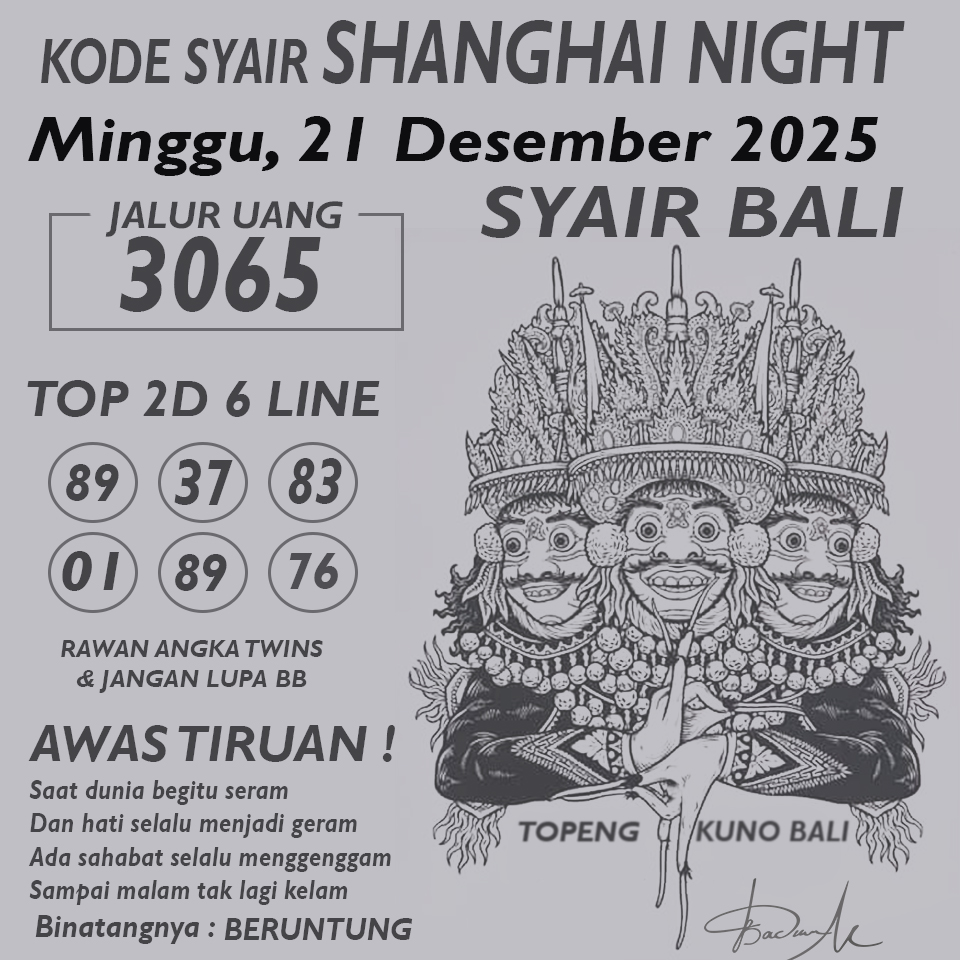 KODE SYAIR SHANGHAI NIGHT
Minggu, 21 Desember 2025
SYAIR BALI
JALUR UANG
3065
TOP 2D 6 LINE
89 37 83
01 89 76
RAWAN ANGKA TWINS
& JANGAN LUPA BB
AWAS TIRUAN !
Saat dunia begitu seram
Dan hati selalu menjadi geram
Ada sahabat selalu menggenggam
Sampai malam tak lagi kelam
Binatangnya : BERUNTUNG
TOPENG KUNO BALI